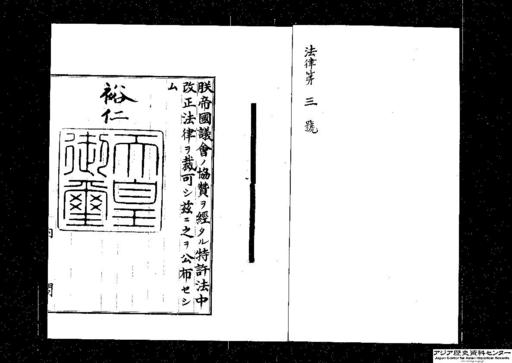 法律第三號
朕帝國議會ノ協贊ヲ經タル特許法中
改正法律ヲ裁可シ茲ニ之ヲ公布セシ
ム
裕仁
天皇御璽
内閣
アジア歴史資料センター
Japan Center for Asian Historical Records